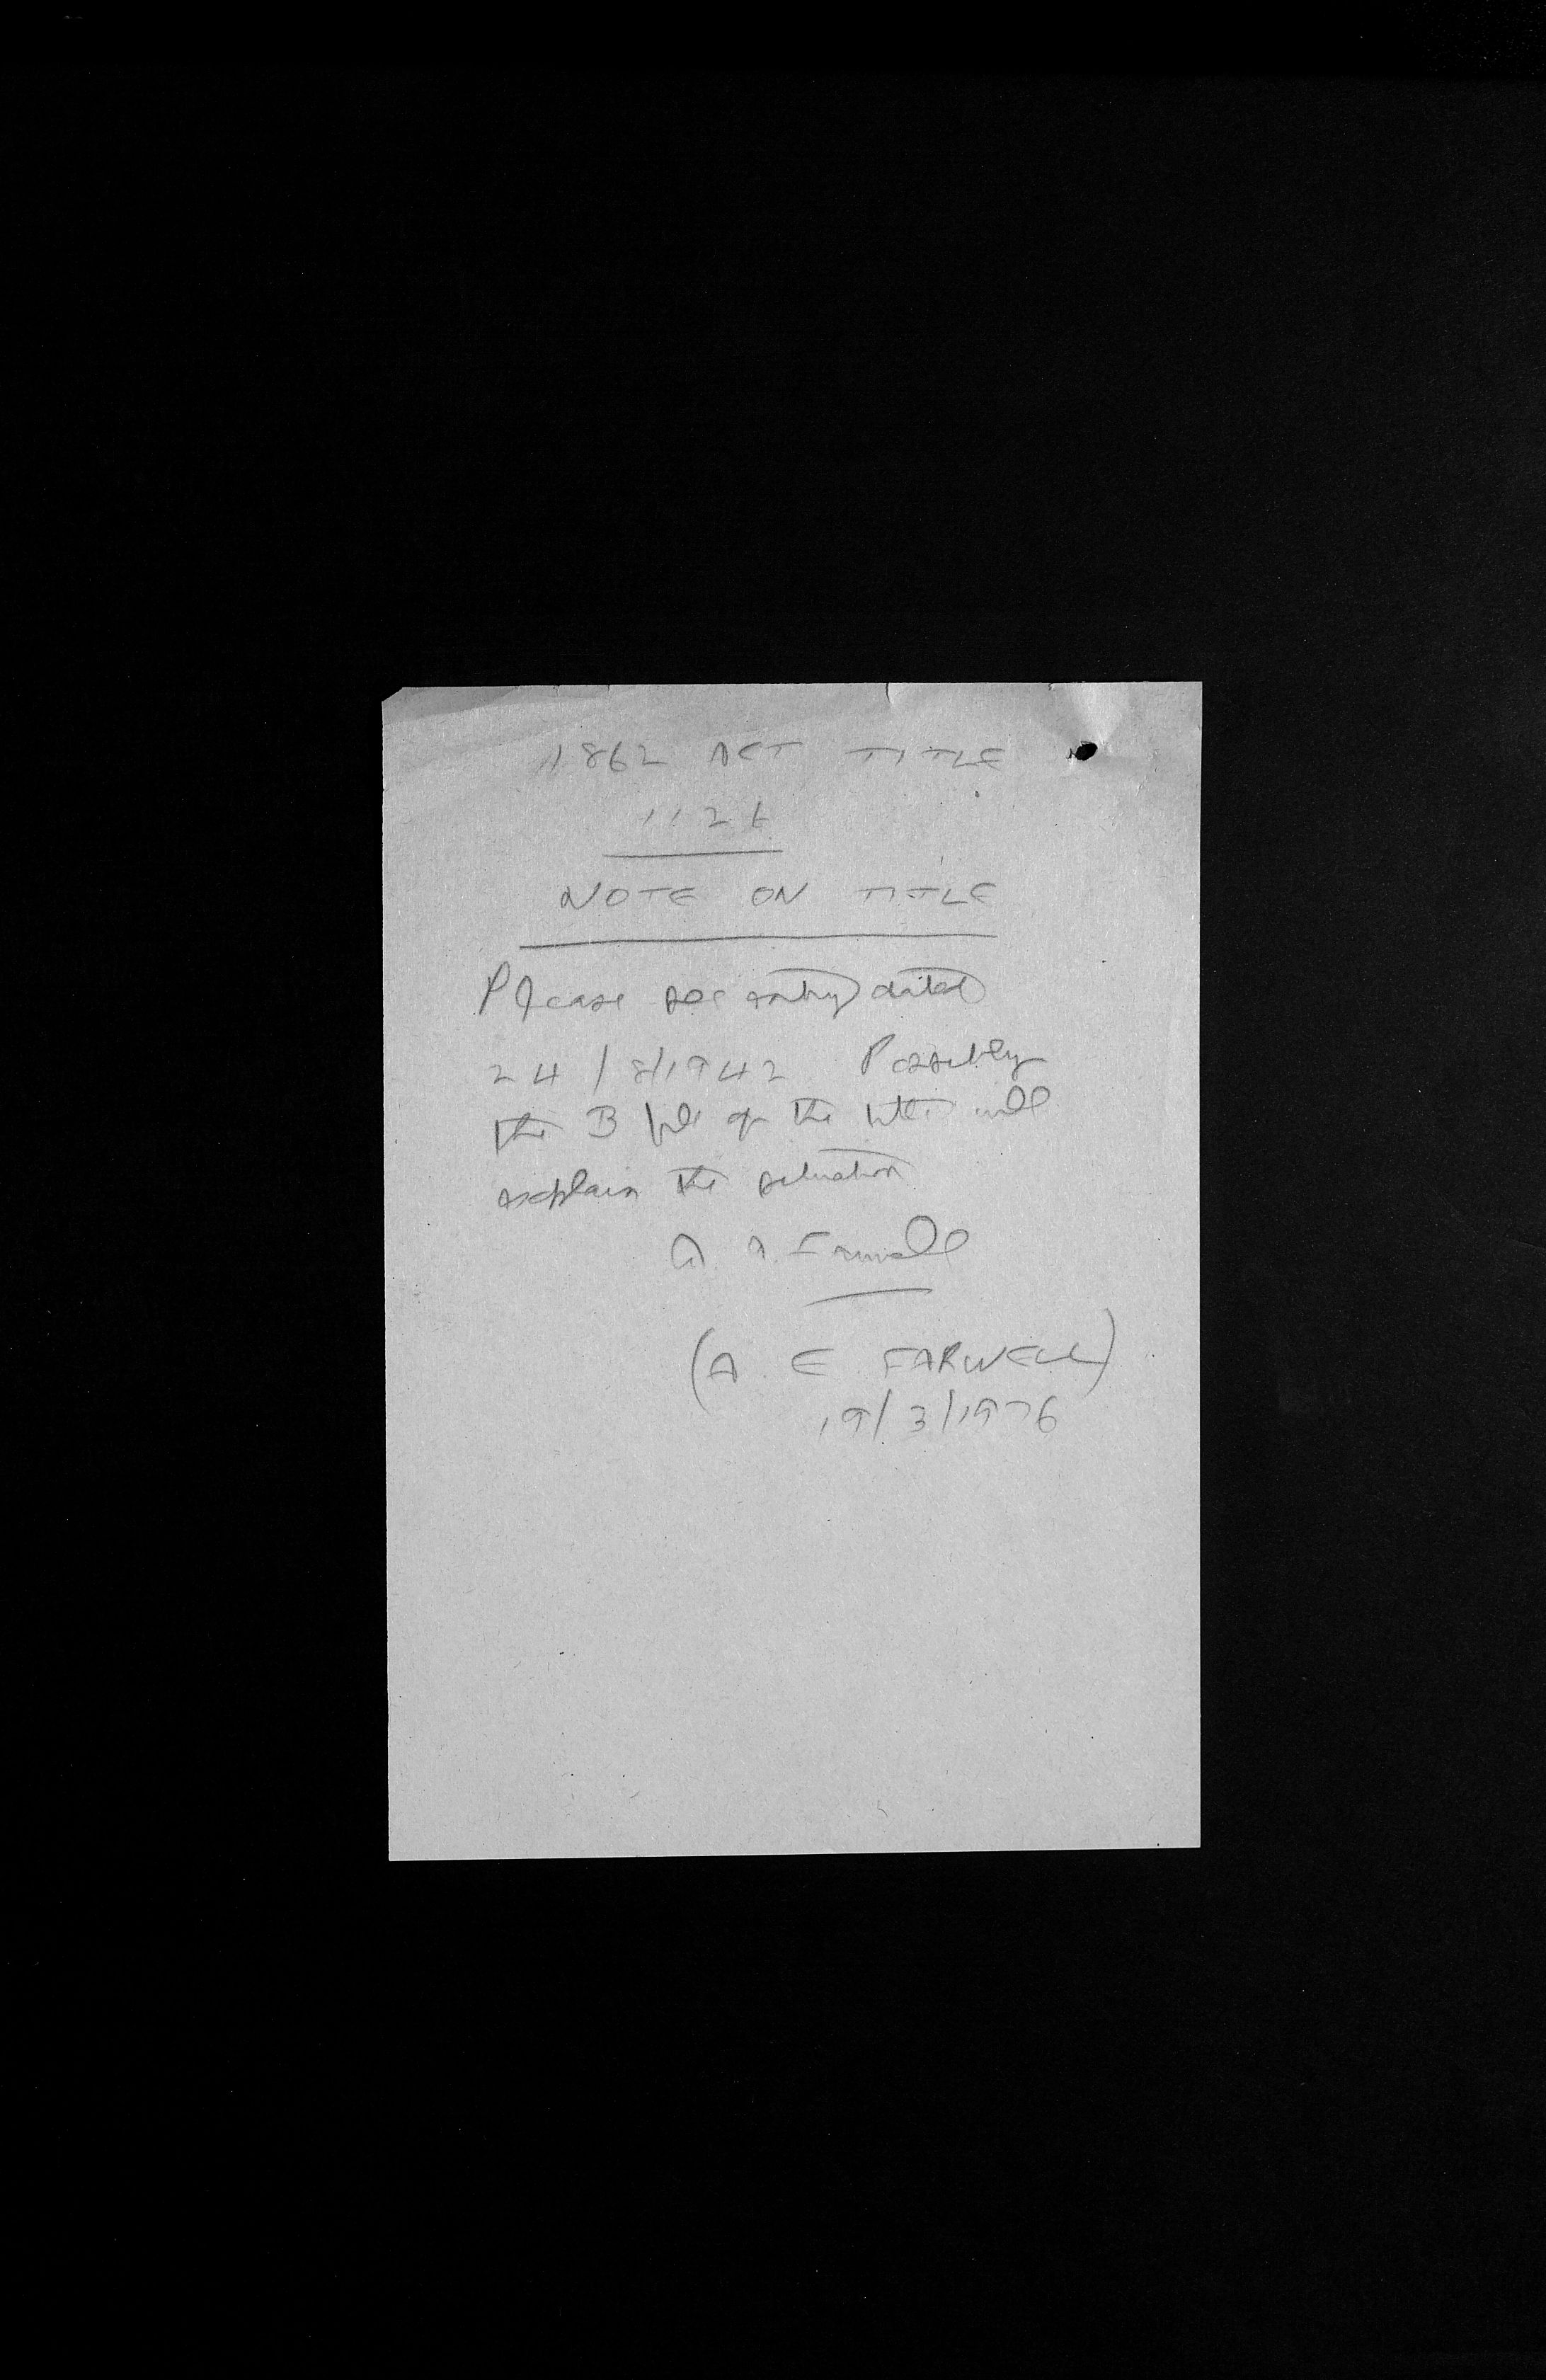 1862 ACT TITLE
1126
NOTE ON TITLE
Please see entry dated
24/8/1942 Possibly
the B file of the title will
explain the situation
A. E. Farwell
(A. E. FARWELL)
19/3/1976